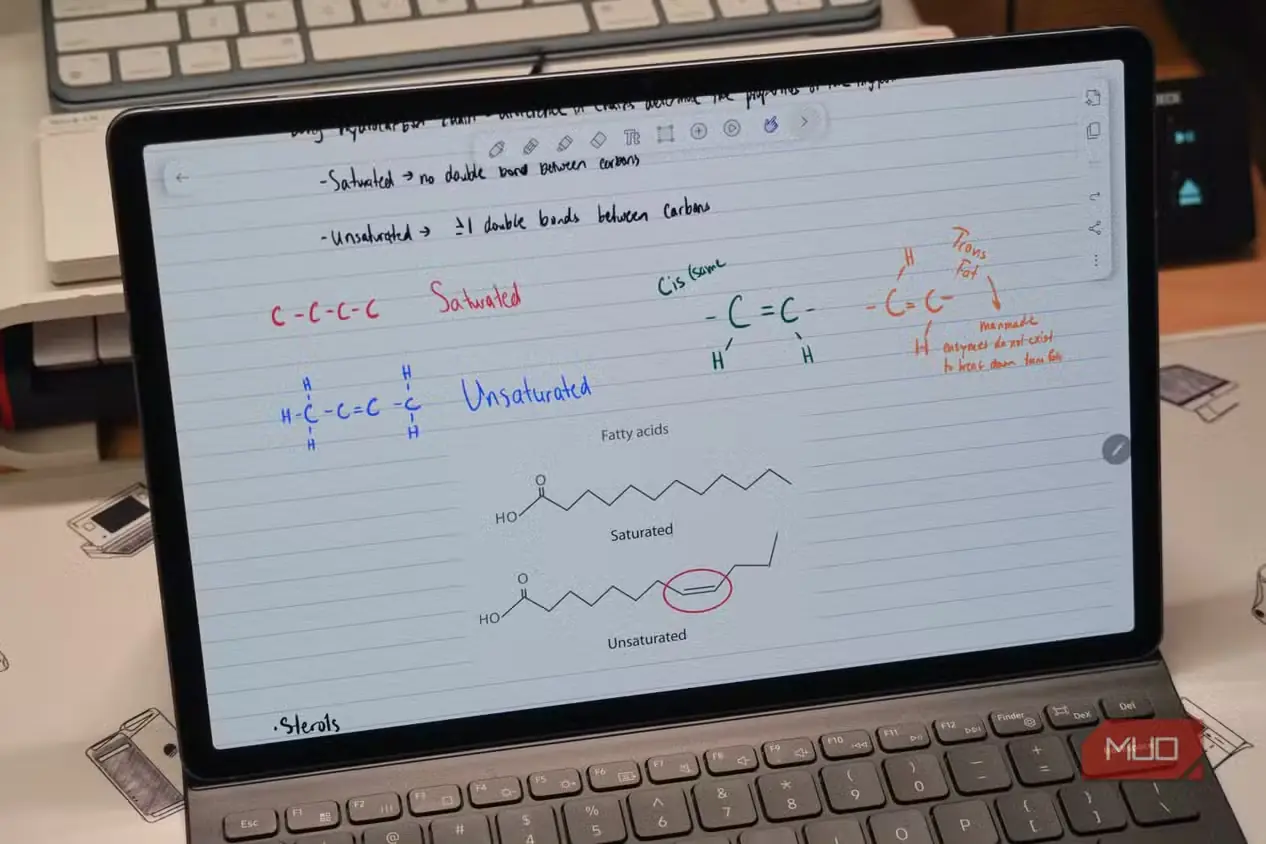 hydrocarbon chain - difference in chains determine the properties of the
- Saturated → no double bond between carbons
- Unsaturated → ≥1 double bonds between carbons
Cis (same
H
Trans
Fat
C - C - C - C Saturated
- C = C -
H H
- C = C -
H
manmade
enzymes do not exist
to break down trans fats
H H
H - C - C = C - C Unsaturated
H H
Fatty acids
O
HO
Saturated
O
HO
Unsaturated
• Sterols
Esc F1 F2 F3 F4 F5 F6 F7 F8 F9 F10 F11 F12 Finder DeX Del
@ # $ 4 % 5 ^ 6 & 7 * 8 ( 9 ) 0 _ - + =
O P { [ } ] | \
MUO